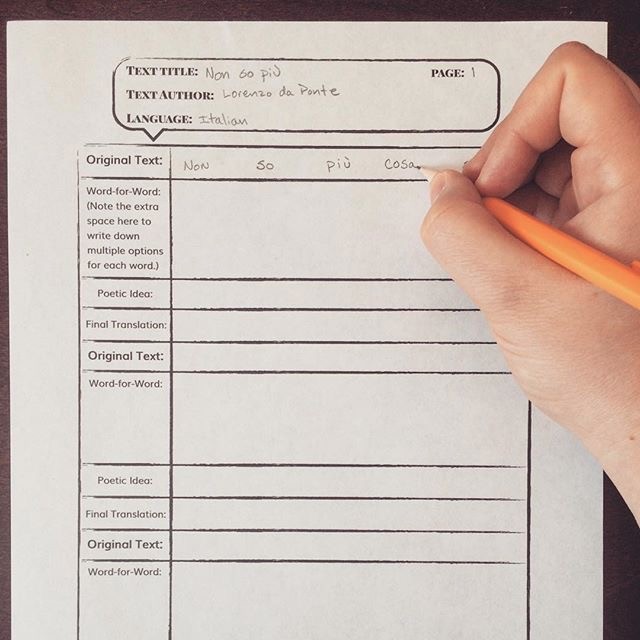 TEXT TITLE: Non so più PAGE: 1
TEXT AUTHOR: Lorenzo da Ponte
LANGUAGE: Italian
Original Text: Non so più cosa
Word-for-Word:
(Note the extra
space here to
write down
multiple options
for each word.)
Poetic Idea:
Final Translation:
Original Text:
Word-for-Word:
Poetic Idea:
Final Translation:
Original Text:
Word-for-Word: